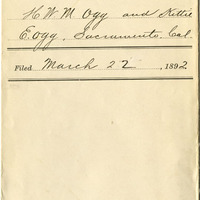 H. W. M Ogg and Kittie
E Ogg, Sacramento. Cal.
Filed March 22, 1892